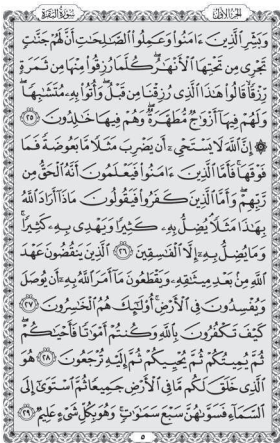 الجزء الأول سورة البقرة
وَبَشِّرِ ٱلَّذِينَ ءَامَنُوا۟ وَعَمِلُوا۟ ٱلصَّـٰلِحَـٰتِ أَنَّ لَهُمْ جَنَّـٰتٍ
تَجْرِى مِن تَحْتِهَا ٱلْأَنْهَـٰرُ ۖ كُلَّمَا رُزِقُوا۟ مِنْهَا مِن ثَمَرَةٍ
رِّزْقًا ۙ قَالُوا۟ هَـٰذَا ٱلَّذِى رُزِقْنَا مِن قَبْلُ ۖ وَأُتُوا۟ بِهِۦ مُتَشَـٰبِهًا ۖ
وَلَهُمْ فِيهَآ أَزْوَٰجٌ مُّطَهَّرَةٌ ۖ وَهُمْ فِيهَا خَـٰلِدُونَ ۝٢٥
۞ إِنَّ ٱللَّهَ لَا يَسْتَحْىِۦٓ أَن يَضْرِبَ مَثَلًا مَّا بَعُوضَةً فَمَا
فَوْقَهَا ۚ فَأَمَّا ٱلَّذِينَ ءَامَنُوا۟ فَيَعْلَمُونَ أَنَّهُ ٱلْحَقُّ مِن
رَّبِّهِمْ ۖ وَأَمَّا ٱلَّذِينَ كَفَرُوا۟ فَيَقُولُونَ مَاذَآ أَرَادَ ٱللَّهُ
بِهَـٰذَا مَثَلًا ۘ يُضِلُّ بِهِۦ كَثِيرًا وَيَهْدِى بِهِۦ كَثِيرًا ۚ
وَمَا يُضِلُّ بِهِۦٓ إِلَّا ٱلْفَـٰسِقِينَ ۝٢٦ ٱلَّذِينَ يَنقُضُونَ عَهْدَ
ٱللَّهِ مِنۢ بَعْدِ مِيثَـٰقِهِۦ وَيَقْطَعُونَ مَآ أَمَرَ ٱللَّهُ بِهِۦٓ أَن يُوصَلَ
وَيُفْسِدُونَ فِى ٱلْأَرْضِ ۚ أُو۟لَـٰٓئِكَ هُمُ ٱلْخَـٰسِرُونَ ۝٢٧
كَيْفَ تَكْفُرُونَ بِٱللَّهِ وَكُنتُمْ أَمْوَٰتًا فَأَحْيَـٰكُمْ ۖ
ثُمَّ يُمِيتُكُمْ ثُمَّ يُحْيِيكُمْ ثُمَّ إِلَيْهِ تُرْجَعُونَ ۝٢٨ هُوَ
ٱلَّذِى خَلَقَ لَكُم مَّا فِى ٱلْأَرْضِ جَمِيعًا ثُمَّ ٱسْتَوَىٰٓ إِلَى
ٱلسَّمَآءِ فَسَوَّىٰهُنَّ سَبْعَ سَمَـٰوَٰتٍ ۚ وَهُوَ بِكُلِّ شَىْءٍ عَلِيمٌ ۝٢٩
٥